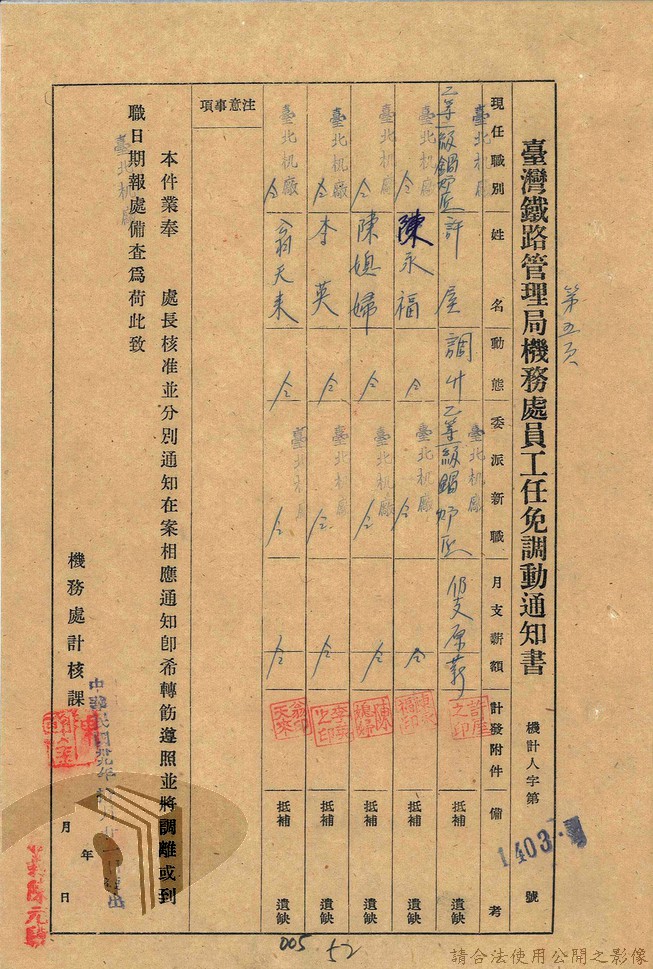 第五頁
臺灣鐵路管理局機務處員工任免調動通知書
機計人字第 1403 號
現任職別 姓名 動態 委派新職 月支薪額 計發附件 備考
臺北机廠 乙等 級鍋炉匠 許屋 調升 臺北机廠 乙等 級鍋炉匠 仍支原薪 許屋之印 抵補 遺缺
臺北机廠 仝 陳永福 仝 臺北机廠 仝 仝 陳永福印 抵補 遺缺
臺北机廠 仝 陳媳婦 仝 臺北机廠 仝 仝 陳媳婦 抵補 遺缺
臺北机廠 仝 李英 仝 臺北机廠 仝 仝 李英之印 抵補 遺缺
臺北机廠 仝 翁天來 仝 臺北机廠 仝 仝 天來 抵補 遺缺
注意事項
本件業奉 處長核准並分別通知在案相應通知卽希轉飭遵照並將調離或到
職日期報處備查爲荷此致
臺北机廠
機務處計核課
中華民國
年 月 日
005 52
請合法使用公開之影像